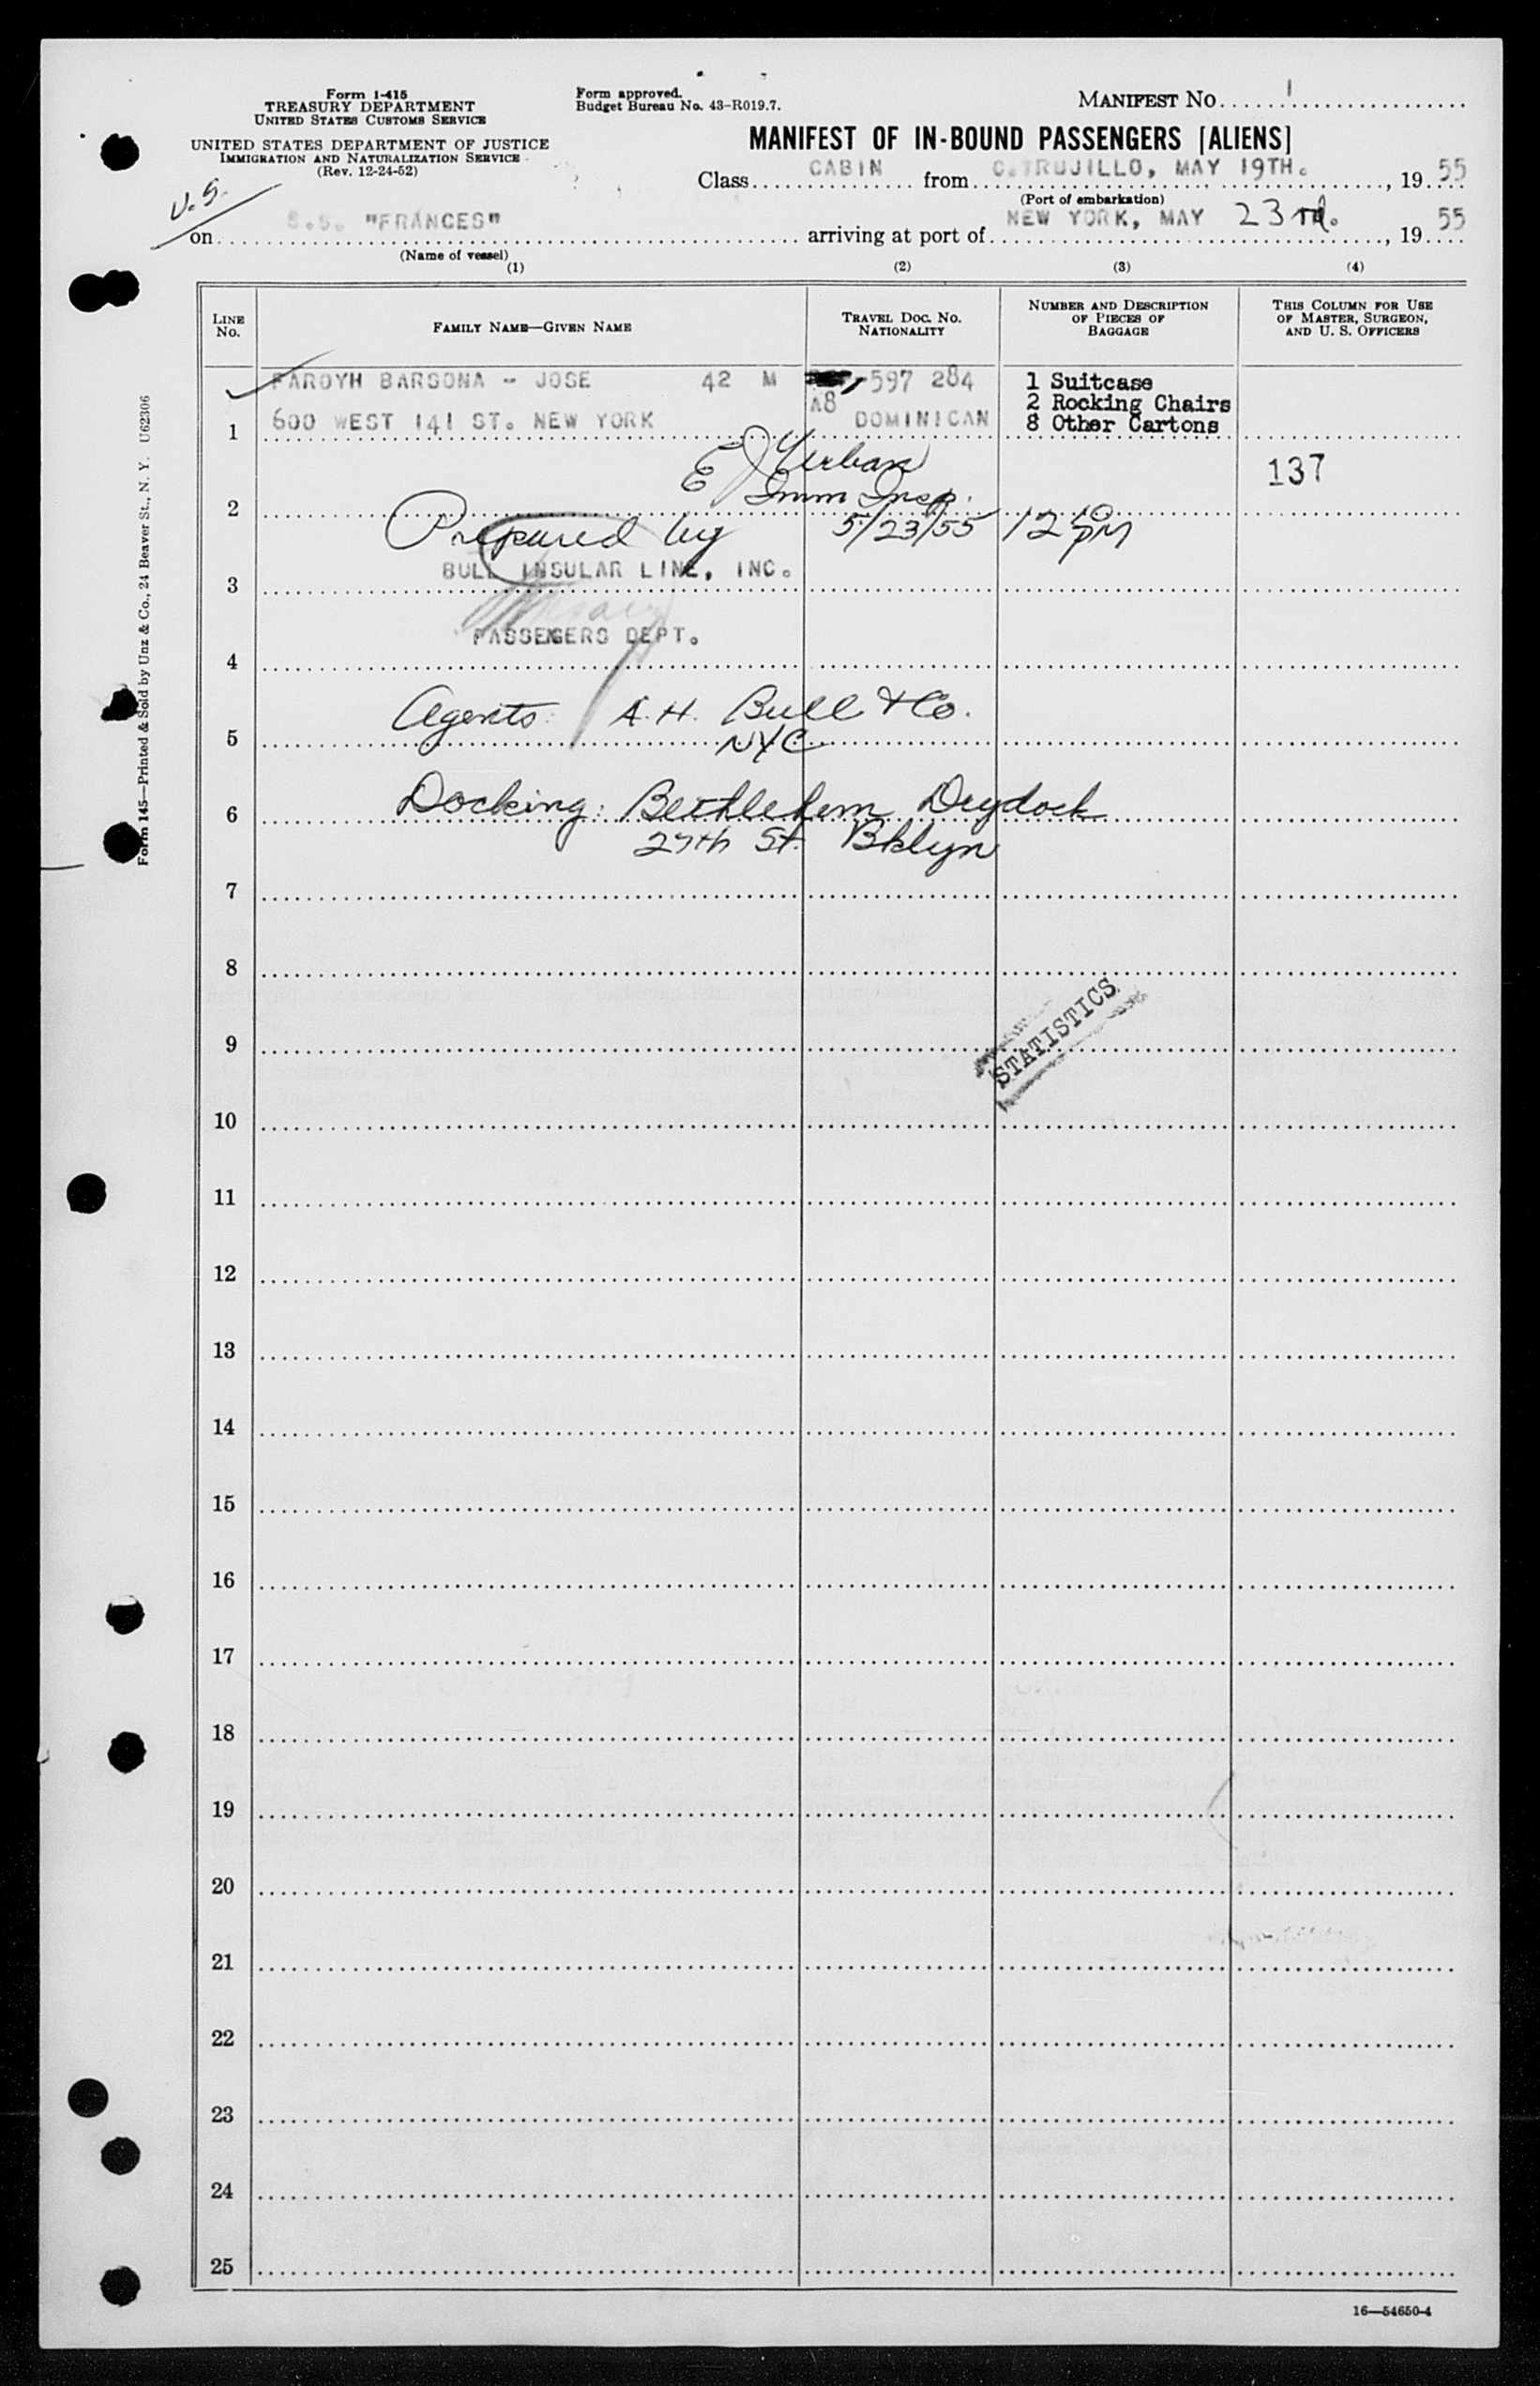 Form I-415
TREASURY DEPARTMENT
UNITED STATES CUSTOMS SERVICE
UNITED STATES DEPARTMENT OF JUSTICE
IMMIGRATION AND NATURALIZATION SERVICE
(Rev. 12-24-52)
Form approved.
Budget Bureau No. 43-R019.7.
MANIFEST NO. 1
MANIFEST OF IN-BOUND PASSENGERS [ALIENS]
Class CABIN from C.TRUJILLO, MAY 19TH. , 19 55
(Port of embarkation)
U.S.
on S.S. "FRANCES" arriving at port of NEW YORK, MAY 23rd. , 19 55
(Name of vessel)
(1) (2) (3) (4)
LINE NO. FAMILY NAME—GIVEN NAME TRAVEL DOC. NO. NATIONALITY NUMBER AND DESCRIPTION OF PIECES OF BAGGAGE THIS COLUMN FOR USE OF MASTER, SURGEON, AND U. S. OFFICERS
FAROYH BARSONA - JOSE 42 M 597 284 1 Suitcase
A8 2 Rocking Chairs
1 600 WEST 141 ST. NEW YORK DOMINICAN 8 Other Cartons
E J Urban 137
Imm Insp.
2
Prepared by 5/23/55 12 10 PM
BULL INSULAR LINE, INC.
3
PASSENGERS DEPT.
4
Agents: A. H. Bull & Co.
5 NYC
Docking: Bethlehem Drydock
6
27th St. Bklyn
7
8
STATISTICS
9
10
11
12
13
14
15
16
17
18
19
20
21
22
23
24
25
16—54650-4
Form 145—Printed & Sold by Unz & Co., 24 Beaver St., N. Y. U62306